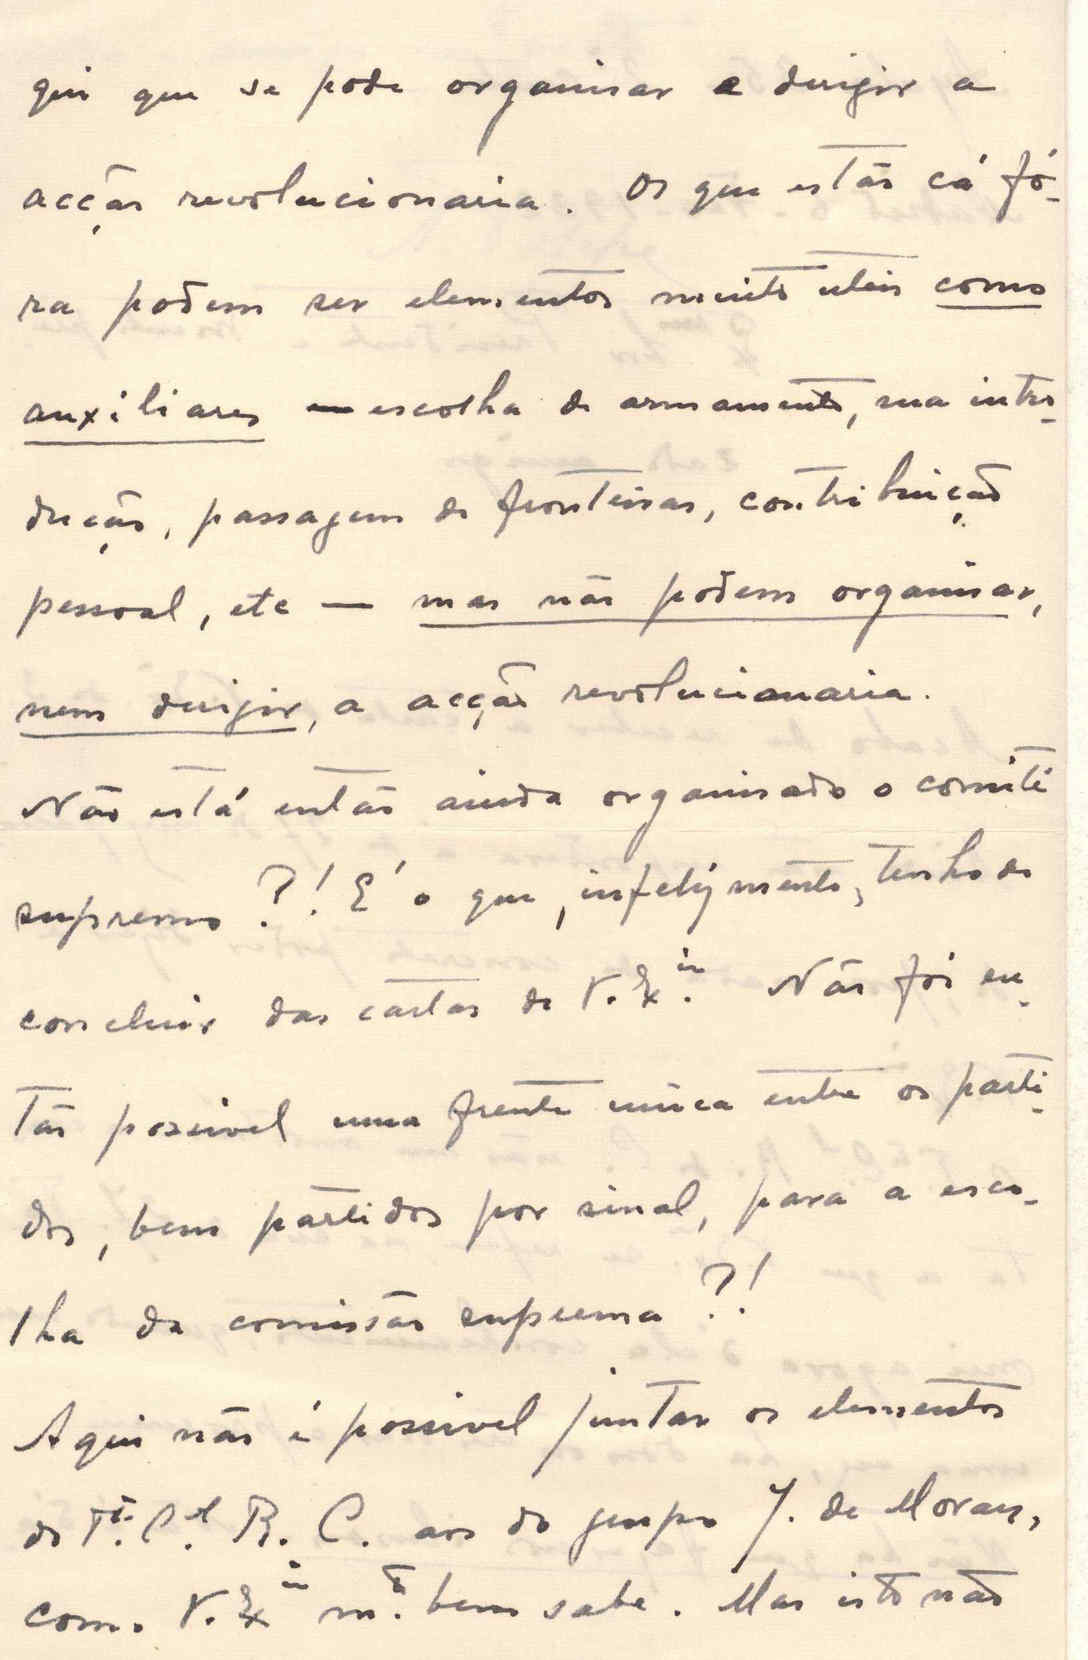 qui que se pode organisar e dirigir a
acção revolucionaria. Os que estão cá fó-
ra podem ser elementos muito uteis como
auxiliares — escolha de armamento, sua intro-
dução, passagem de fronteiras, contribuição
pessoal, etc — mas não podem organisar,
nem dirigir, a acção revolucionaria.
Não está então ainda organisado o comité
supremo ?! E' o que, infelizmente, tenho de
concluir das cartas de V. Ex.ia Não foi en-
tão possivel uma frente unica entre os parti-
dos, bem partidos por sinal, para a esco-
lha da comissão suprema ?!
Aqui não é possivel juntar os elementos
do T.te C.el R. C. aos do grupo J. de Moraes,
com. V. Ex.ia m.to bem sabe. Mas isto não